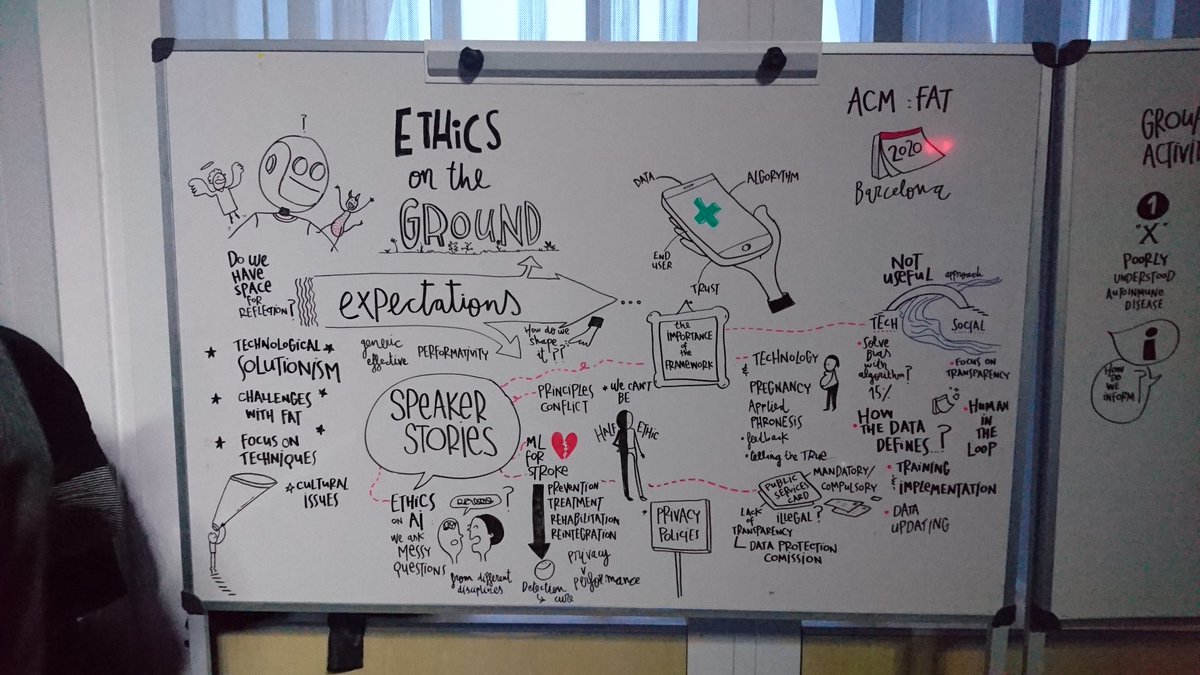 ?
ETHICS
on the
GROUND
ACM : FAT
2020
Barcelona
DATA
ALGORYTHM
END
USER
TRUST
DO WE
HAVE
SPACE
FOR
REFLECTION?
expectations
...
HOW DO WE
SHAPE
IT??
generic
effective
PERFORMATIVITY
TECHNOLOGICAL
SOLUTIONISM
CHALLENGES
WITH FAT
FOCUS ON
TECHNIQUES
CULTURAL
ISSUES
SPEAKER
STORIES
PRINCIPLES
CONFLICT
WE CAN'T
BE
HALF ETHIC
the
IMPORTANCE
of the
FRAMEWORK
TECHNOLOGY
&
PREGNANCY
APPLIED
PHRONESIS
feedback
telling the TRUE...
NOT
USEFUL approach
TECH
SOCIAL
SOLVE
BIAS
with
algorithm?
15%
FOCUS ON
TRANSPARENCY
HOW
THE DATA
DEFINES..?
HUMAN
IN THE
LOOP
TRAINING
&
IMPLEMENTATION
DATA
UPDATING
ML
FOR
STROKE
PREVENTION
TREATMENT
REHABILITATION
REINTEGRATION
PRIVACY
V
performance
Detection
cure
ETHICS
ON AI
WE ASK
MESSY
QUESTIONS
?
from different
disciplines
PRIVACY
POLICIES
PUBLIC
SERVICES
CARD
MANDATORY/
COMPULSORY
ILLEGAL?
LACK
OF
TRANSPARENCY
DATA PROTECTION
COMISSION
GROU
ACTIVI
1
"X"
POORLY
UNDERSTOOD
AUTOINMUNE
DISEASE
i
HOW
DO
WE
INFORM?